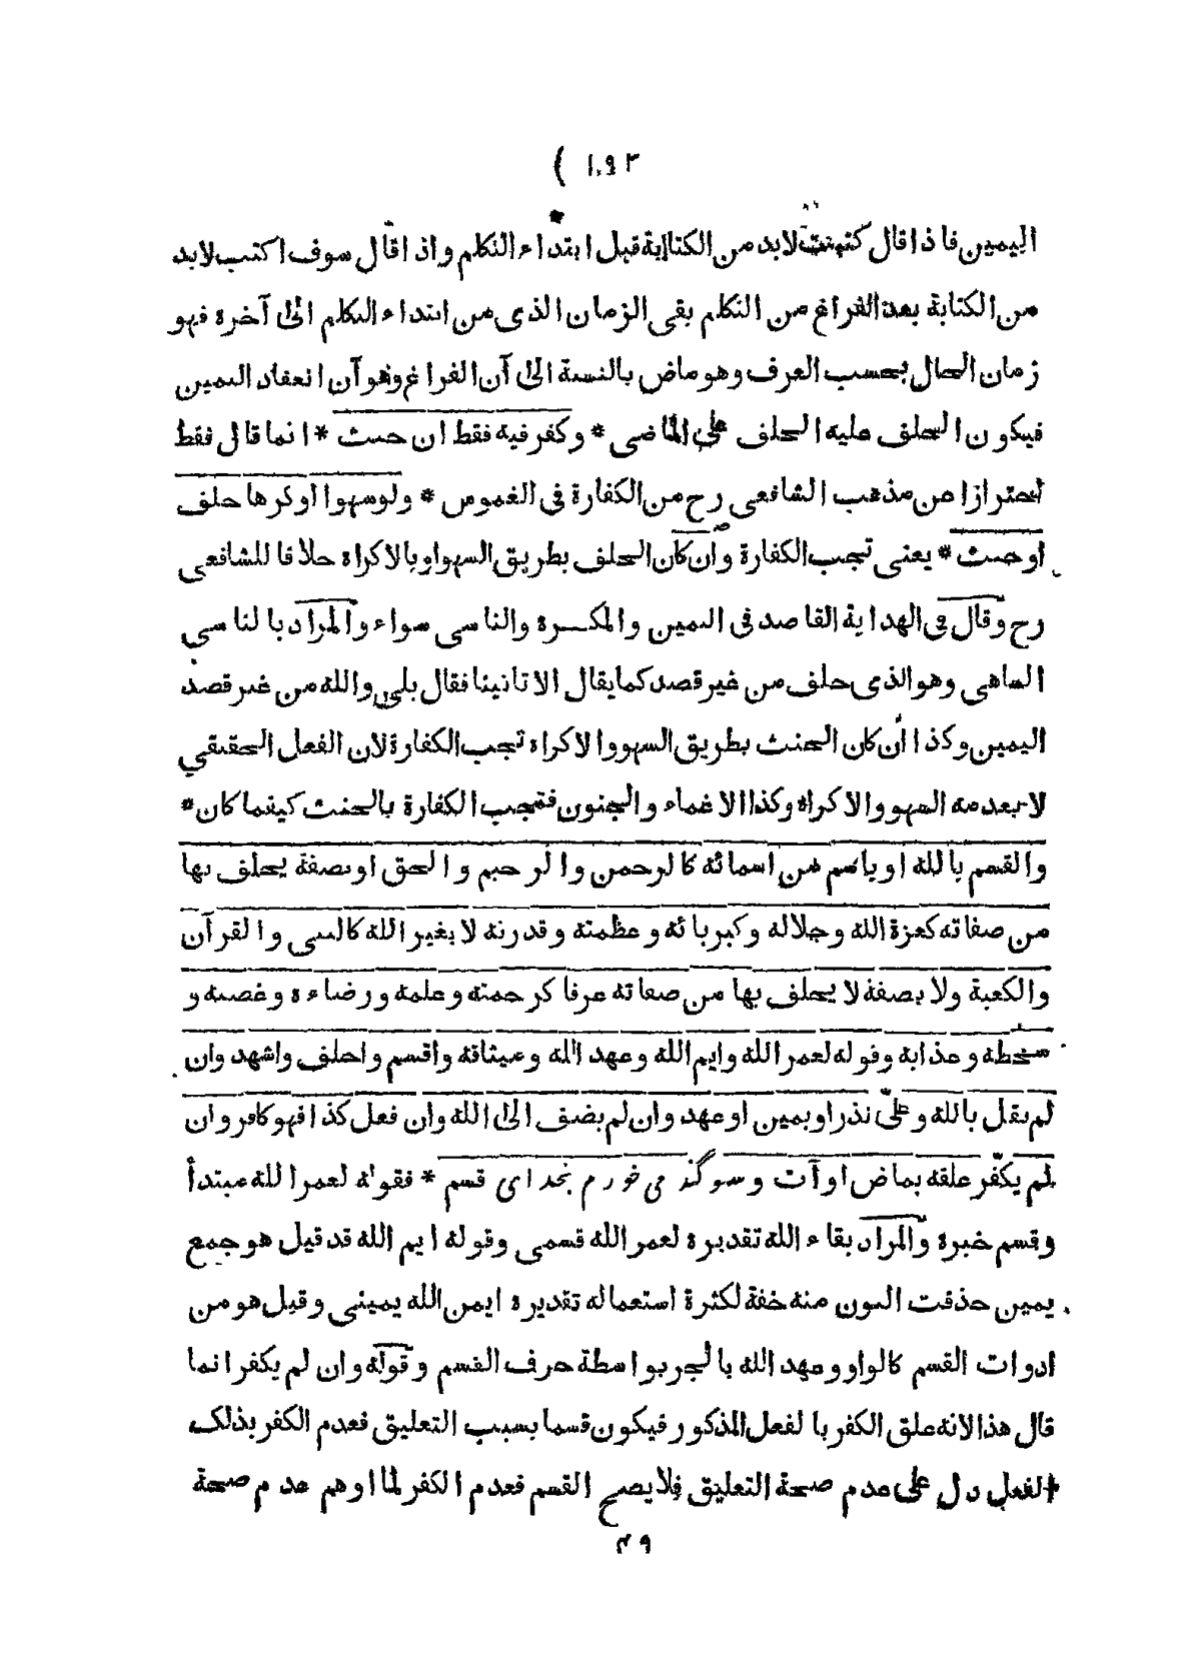 ( ١٩٣
اليمين فاذا قال كتبت لابد من الكتابة قبل ابتداء التكلم واذا قال سوف اكتب لابد
من الكتابة بعد الفراغ من التكلم بقى الزمان الذى من ابتداء التكلم الى آخره فهو
زمان الحال بحسب العرف وهو ماض بالنسبة الى آن الفراغ وهو آن انعقاد اليمين
فيكون الحلف عليه الحلف على الماضى * وكفر فيه فقط ان حنث * انما قال فقط
احترازا عن مذهب الشافعى رح من الكفارة فى الغموس * ولو سهوا او كرها حلف
او حنث * يعنى تجب الكفارة وان كان الحلف بطريق السهو او بالاكراه خلافا للشافعى
رح وقال فى الهداية القاصد فى اليمين والمكره والناسى سواء والمراد بالناسى
الساهى وهو الذى حلف من غير قصد كما يقال الا تاتينا فقال بلى والله من غير قصد
اليمين وكذا ان كان الحنث بطريق السهو والاكراه تجب الكفارة لان الفعل الحقيقي
لا يعدمه السهو والاكراه وكذا الاغماء والجنون فتجب الكفارة بالحنث كيفما كان *
والقسم بالله او باسم من اسمائه كالرحمن والرحيم والحق او بصفة يحلف بها
من صفاته كعزة الله وجلاله وكبريائه وعظمته وقدرته لا بغير الله كالنبى والقرآن
والكعبة ولا بصفة لا يحلف بها من صفاته عرفا كرحمته وعلمه ورضاءه وغضبه و
سخطه وعذابه وقوله لعمر الله وايم الله وعهد الله وميثاقه واقسم واحلف واشهد وان
لم يقل بالله وعلىّ نذر او يمين او عهد وان لم يضف الى الله وان فعل كذا فهو كافر وان
لم يكفّر علقه بماض او آت وسوگند مى خورم بخداى قسم * فقوله لعمر الله مبتدأ
وقسم خبره والمراد بقاء الله تقديره لعمر الله قسمى وقوله ايم الله قد قيل هو جمع
يمين حذفت النون منه خفة لكثرة استعماله تقديره ايمن الله يمينى وقيل هو من
ادوات القسم كالواو وعهد الله بالجر بواسطة حرف القسم وقوله وان لم يكفر انما
قال هذا لانه علق الكفر بالفعل المذكور فيكون قسما بسبب التعليق فعدم الكفر بذلك
الفعل دل على عدم صحة التعليق فلا يصح القسم فعدم الكفر لما اوهم عدم صحة
٤٩